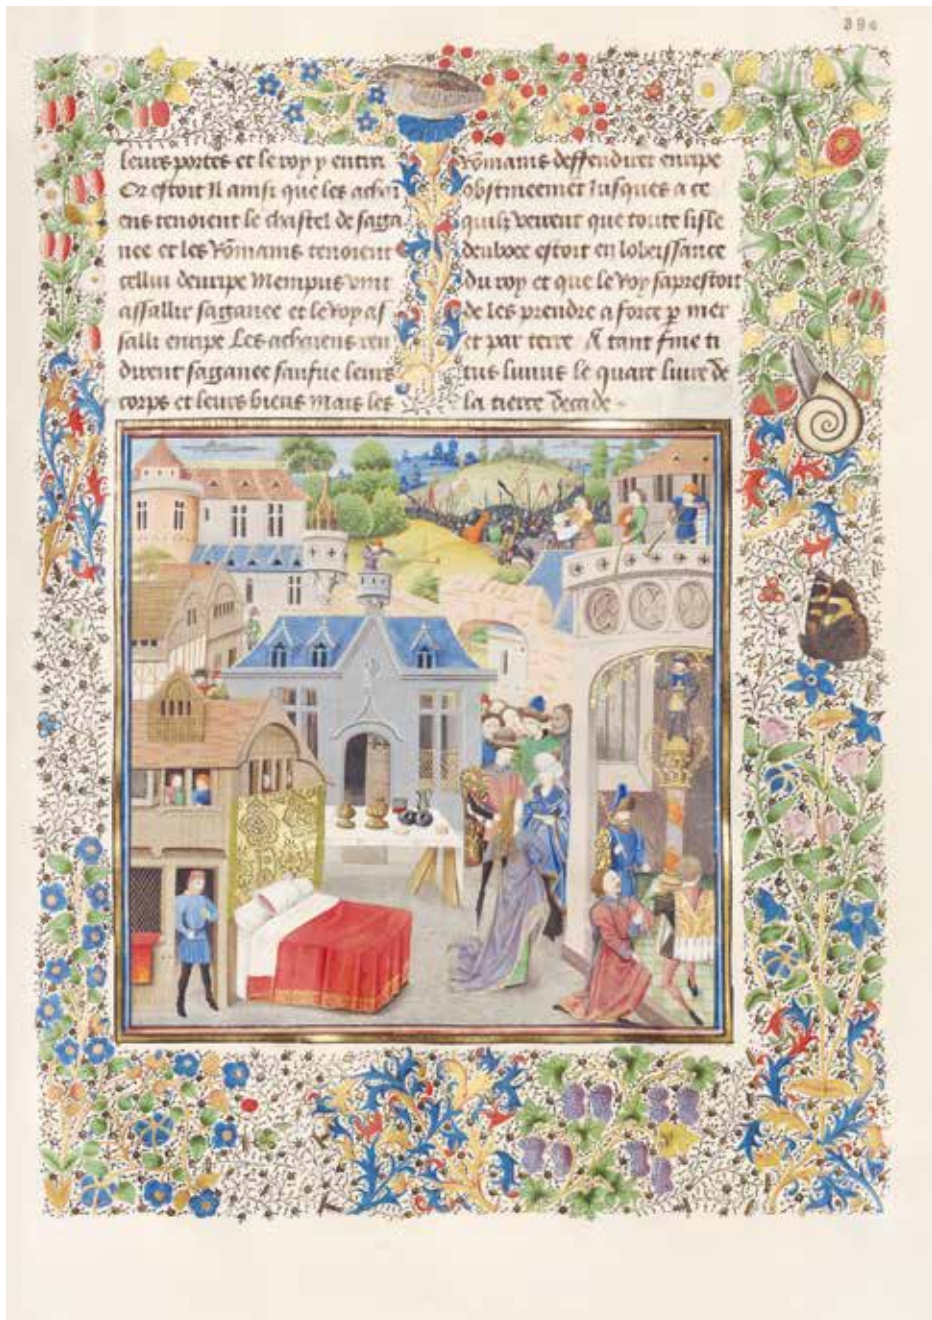 396
leurs portes et le roy y entra
Or estoit Il ainsi que les achai
ens tenoient le chastel de saga
nee et les Rommains tenoient
cellui deuripe Menipus vint
assallir saganee et le roy as
salli euripe Les achaiens ren
dirent saganee saufue leurs
corps et leurs biens mais les
Rommains deffendirent euripe
obstineemēt Jusques a ce
quilz veirent que toute lisle
deuboee estoit en lobeissance
du roy et que le Roy saprestoit
de les prendre a force p mer
et par terre A tant fine ti
tus liuius le quart liure de
la tierce decade